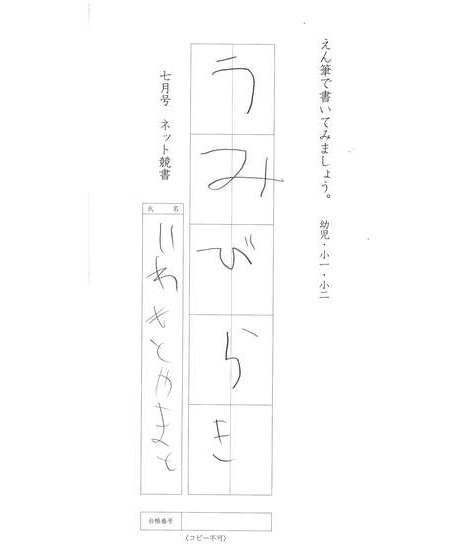 えん筆で書いてみましょう。 幼児・小一・小二
うみびらき
七月号 ネット競書
氏名
いわもとやまと
台帳番号
(コピー不可)